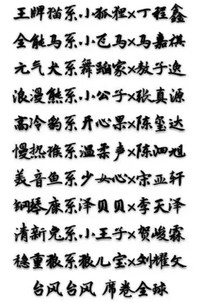 王牌猫系.小狐狸×丁程鑫
全能马系.小飞马×马嘉祺
元气犬系舞蹈家×敖子逸
浪漫熊系.小公子×张真源
高冷豹系开心果×陈玺达
慢热猴系.温柔声×陈泗旭
美音鱼系少女心×宋亚轩
钢琴鹿系泽贝贝×李天泽
清新兔系.小王子×贺峻霖
稳重狼系狼儿宝×刘耀文
台风台风 席卷全球